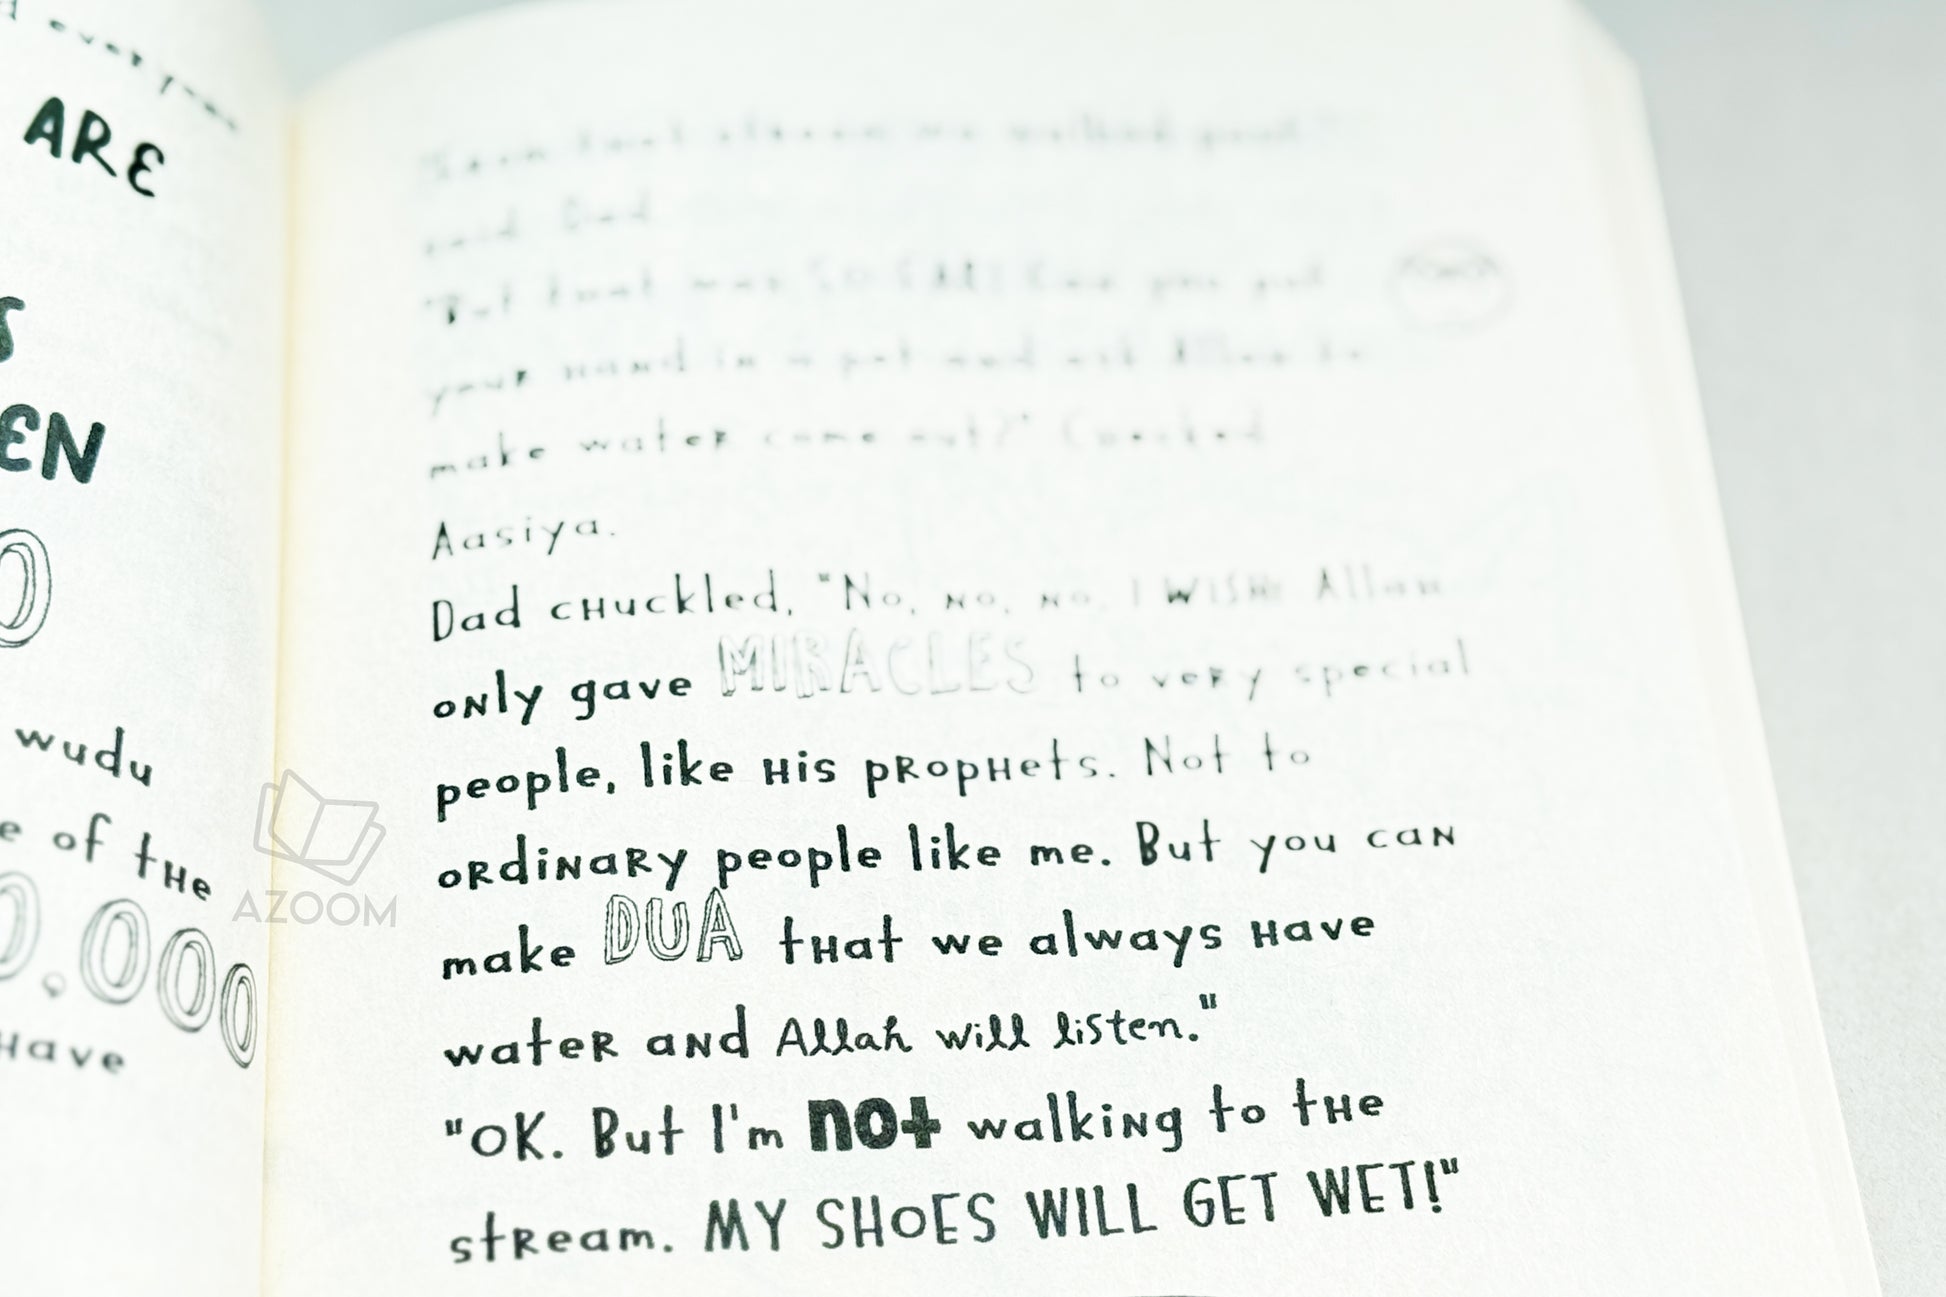 ARE
EN
wudu
of the
have
AZOOM
said Dad.
"But that was SO FAR! Can you put
your hand in a pot and ask Allah to
make water come out?"
Aasiya.
Dad chuckled, "No, no, no, I WISH! Allah
only gave MIRACLES to very special
people, like His prophets. Not to
ordinary people like me. But you can
make DUA that we always have
water and Allah will listen."
"OK. But I'm not walking to the
stream. MY SHOES WILL GET WET!"